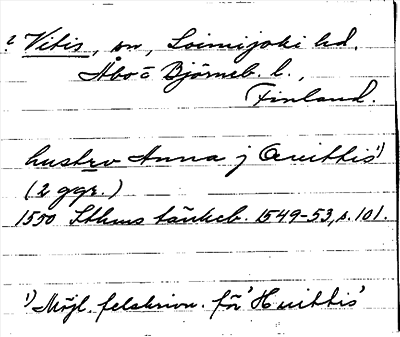 ? Vitis, sn, Loimijoki hd,
Åbo o Björneb. l.,
Finland.
hustrv Anna j Quittis 1)
(2 ggr.)
1550 Sthms tänkeb. 1549-53, s. 101.
1) Möjl. felskrivn. för 'Huittis'